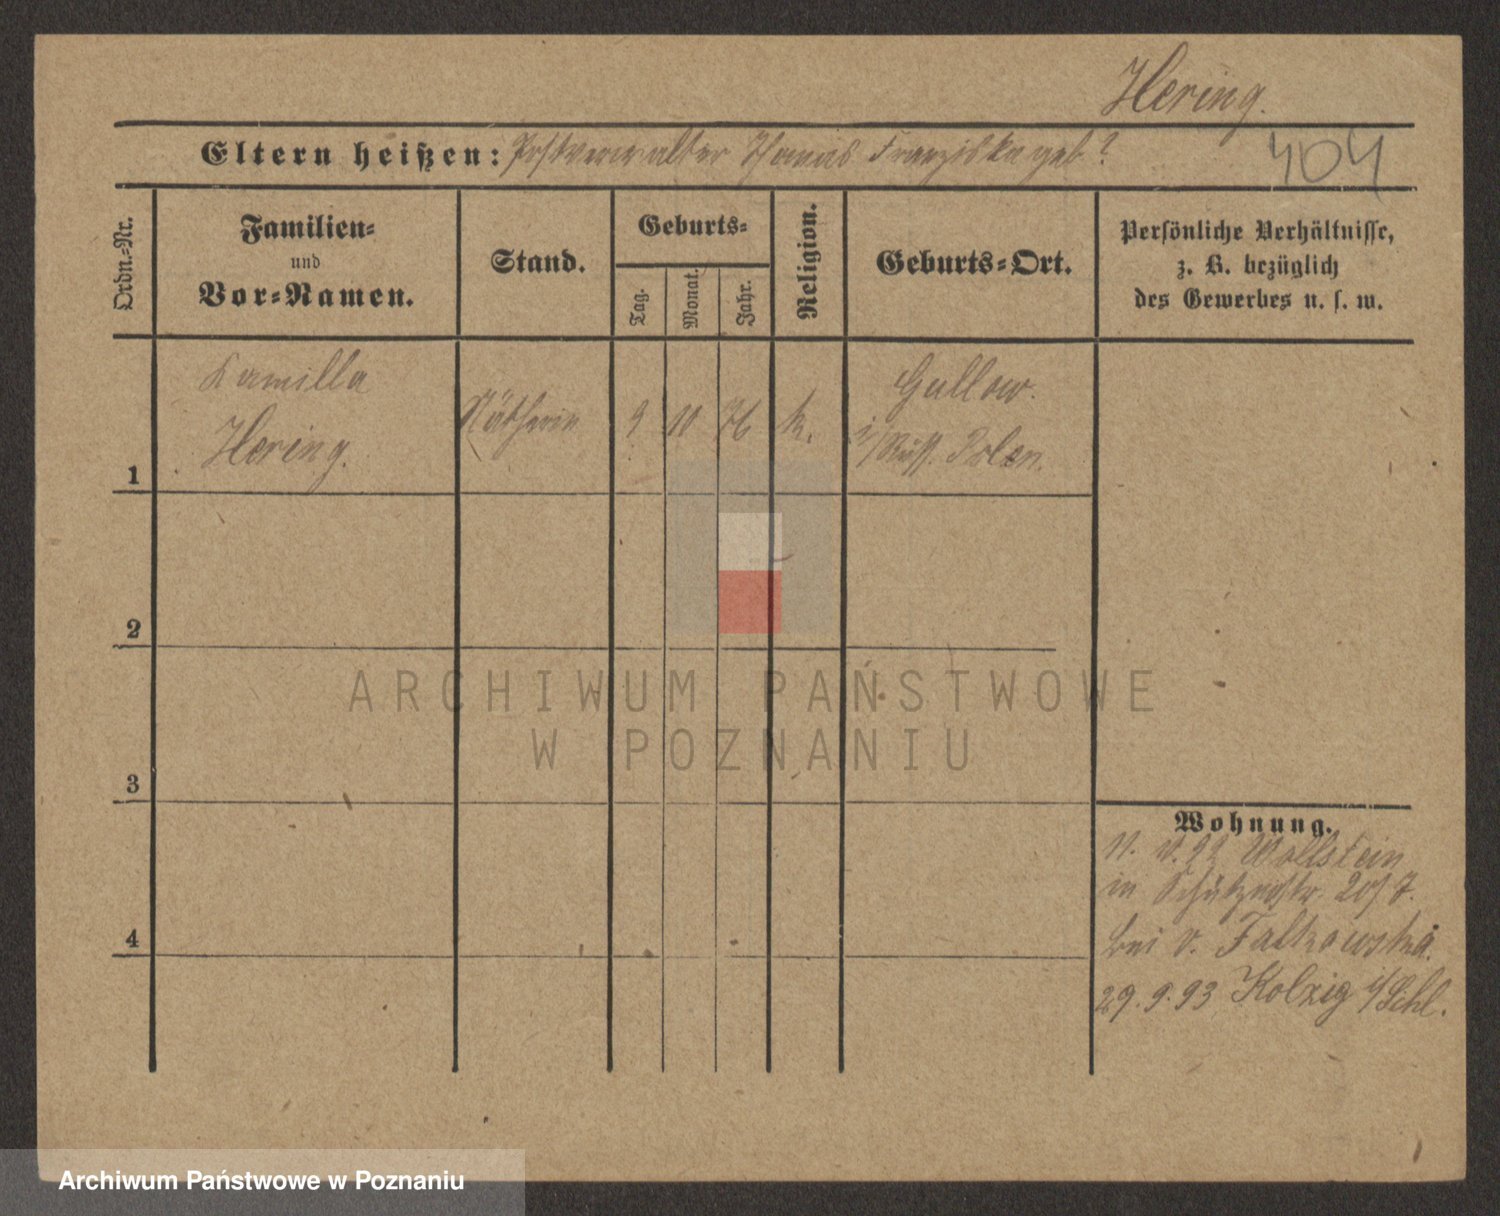 Hering.
Eltern heißen: Postverwalter Thomas Franziska geb?
404
Ordn.-Nr.
Familien-
und
Vor-Namen.
Stand.
Geburts-
Tag.
Monat.
Jahr.
Religion.
Geburts-Ort.
Persönliche Verhältnisse,
z. B. bezüglich
des Gewerbes u. s. w.
1
Kamilla
Hering.
Nätherin
9
10
76
k.
Gullow.
i/Russ. Polen.
2
ARCHIWUM PAŃSTWOWE
W POZNANIU
3
4
Wohnung.
11. 92 Wollstein
in Schützenstr.
bei v. Falkowska.
29. 9. 93 Kolzig i/Schl.
Archiwum Państwowe w Poznaniu